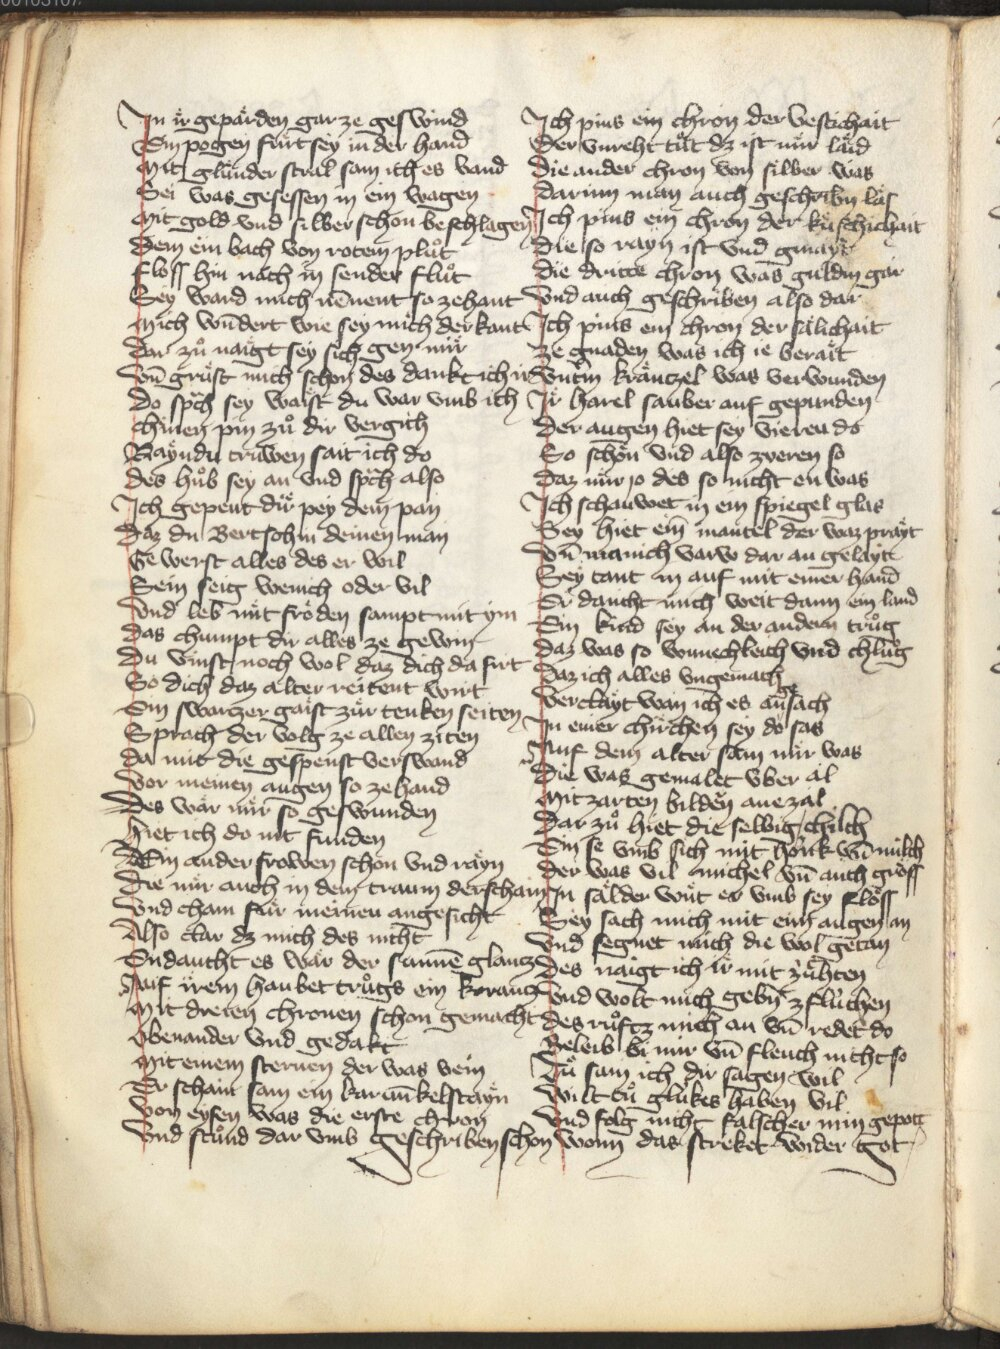 In ir gepärden gar ze geswind
Ein pogen fürt sey in der hand
Mit glünder stral sam ich es vand
Sei was gesessen in ein wagen
Mit gold vnd silber schon beschlagen
Dem ein bach von rotem plůt
Floss hin nach in sender flůt
Sey ward mich nēnent so zehant
Mich wūdert wie sey mich derkant
Dar zů naigt sey sich gen mir
Vn̄ grüst mich schon des dankt ich ir
Do spch sey waist du war vmb ich
Chömen pin zů dir vergich
Nayn du trüwen sait ich do
Des hůb sey an vnd spch also
Ich gepeut dir pey dem pan
Daz du Bertschin deinen man
Gewerst alles des er wil
Sein seig wenich oder vil
Vnd leb mit fröden sampt mit ym
Das chumpt dir alles ze gewin
Du vinst noch wol daz dich da fürt
So dich daz alter reitent wirt
Ein swarczer gaist zür tenken seiten
Sprach der volg ze allen ziten
Da mit die gespenst verswand
Vor meinen augen so zehand
Des wär mir so geswunden
Hiet ich do nit funden
Ein ander frowen schon vnd rayn
Die mir auch in dem traum derschain
Vnd cham für meinen angesicht
Also clar dz mich des nicht
Endaucht es wär der sunnē glancz
Auf irem haubet trůgs ein krancz
Mit dreien chronen schon gemacht
Obenander vnd gedakt
Mit einem sternen der was vein
Er schain sam ein karūkelstayn
Von eysen was die erste chron
Vnd stůnd dar vmb geschriben schon
Ich pins ein chron der vestichait
Der vnreht tůt dz ist mir laid
Die ander chron von silber was
Darinn man auch geschribn las
Ich pins ein chron der küschichait
Die so rayn ist vnd gmayt
Die dritte chron was guldin gar
Vnd auch geschriben also dar
Ich pins ein chron der sälichait
Ze gnaden was ich ie berait
Vntm kränczel was verwunden
Ir harel sauber auf gepunden
Der augen hiet sey vieren do
So schön vnd also zweren so
Daz mir io des so nicht en was
Ich schauwet in ein spiegel glas
Sey hiet ein mantel der waz prayt
Vn̄ manich varw dar an gelayt
Sey tant in auf mit einer hand
Er daucht mich weit dann ein land
Ein kind sey an der andern trůg
Daz was so wunechleich vnd chlůg
Daz ich alles vngemach
Verclayt wan ich es ansach
In einer chirchen sey do sas
Auf dem alter sam mir was
Die was gemalet vber al
Mit zarten bilden ane zal
Dar zů hiet die selbig chilch
Ein se vmb sich mit hönk vn̄ milch
Der was vil michel vn̄ auch gröss
In sälder wüt er vmb sey flöss
Sey sach mich mit eim augen an
Vnd segnet mich die wol getan
Des naigt ich ir mit zühten
Vnd wolt mich gebn z flüchen
Des růftz mich an vn̄ redet do
Beleib bi mir vn̄ fleuch nicht so
Tů sam ich dir sagen wil
Wilt tu glükes haben vil
Vnd folg nicht falscher min gepott
Wann das streket wider got